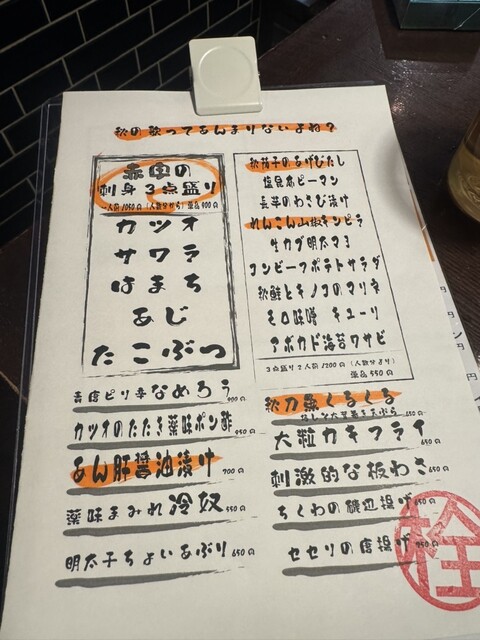 秋の歌ってあんまりないよね？
赤字の
刺身３点盛り
一人前1050円（人数分から）単品900円
カツオ
サワラ
はまち
あじ
たこぶつ
秋茄子のあげびたし
塩昆布ピーマン
長芋のわさび漬け
れんこん山椒キンピラ
生カブ明太マヨ
コンビーフポテトサラダ
秋鮭とキノコのマリネ
モロ味噌 キューリ
アボカド海苔ワサビ
3点盛り2人前1200円（人数分より）
単品550円
青唐ピリ辛なめろう 900円
カツオのたたき薬味ポン酢 950円
あん肝醤油漬け 700円
薬味まみれ冷奴 550円
明太子ちょいあぶり 650円
秋刀魚くるくる
650円
大粒カキフライ 650円
刺激的な板わさ 650円
ちくわの磯辺揚げ 450円
セセリの唐揚げ 750円
栓